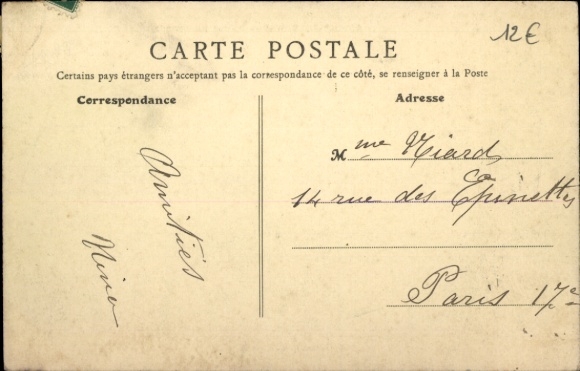 12€
CARTE POSTALE
Certains pays étrangers n'acceptant pas la correspondance de ce côté, se renseigner à la Poste
Correspondance
Amitiés
Adresse
Mme
14 rue des Epinettes
Paris 17e